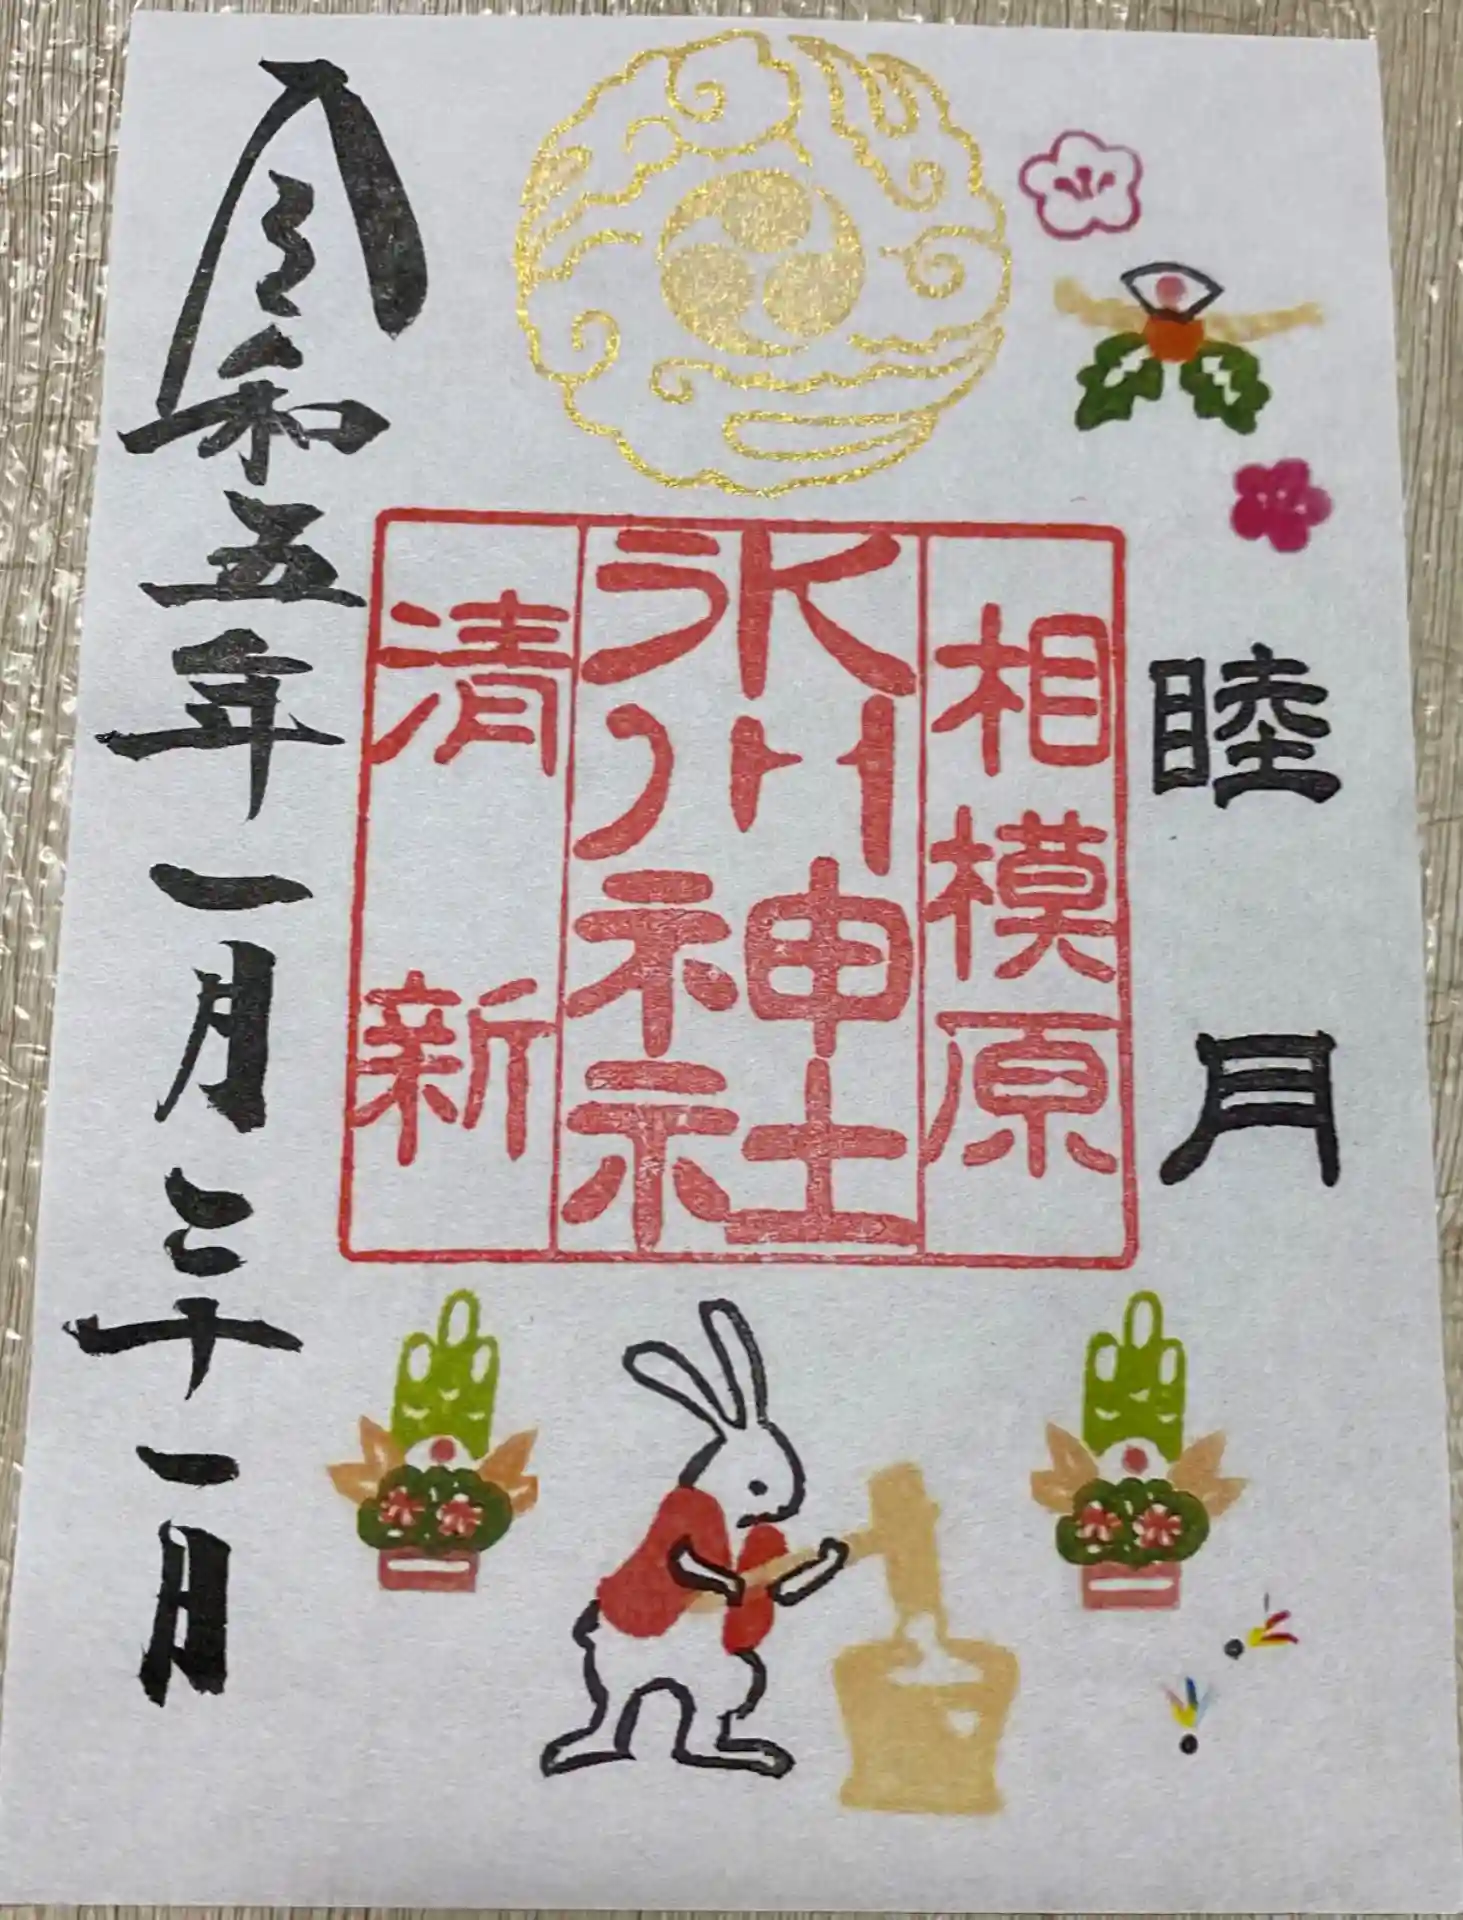 睦月
相模原
氷川神社
清新
令和五年一月三十一日